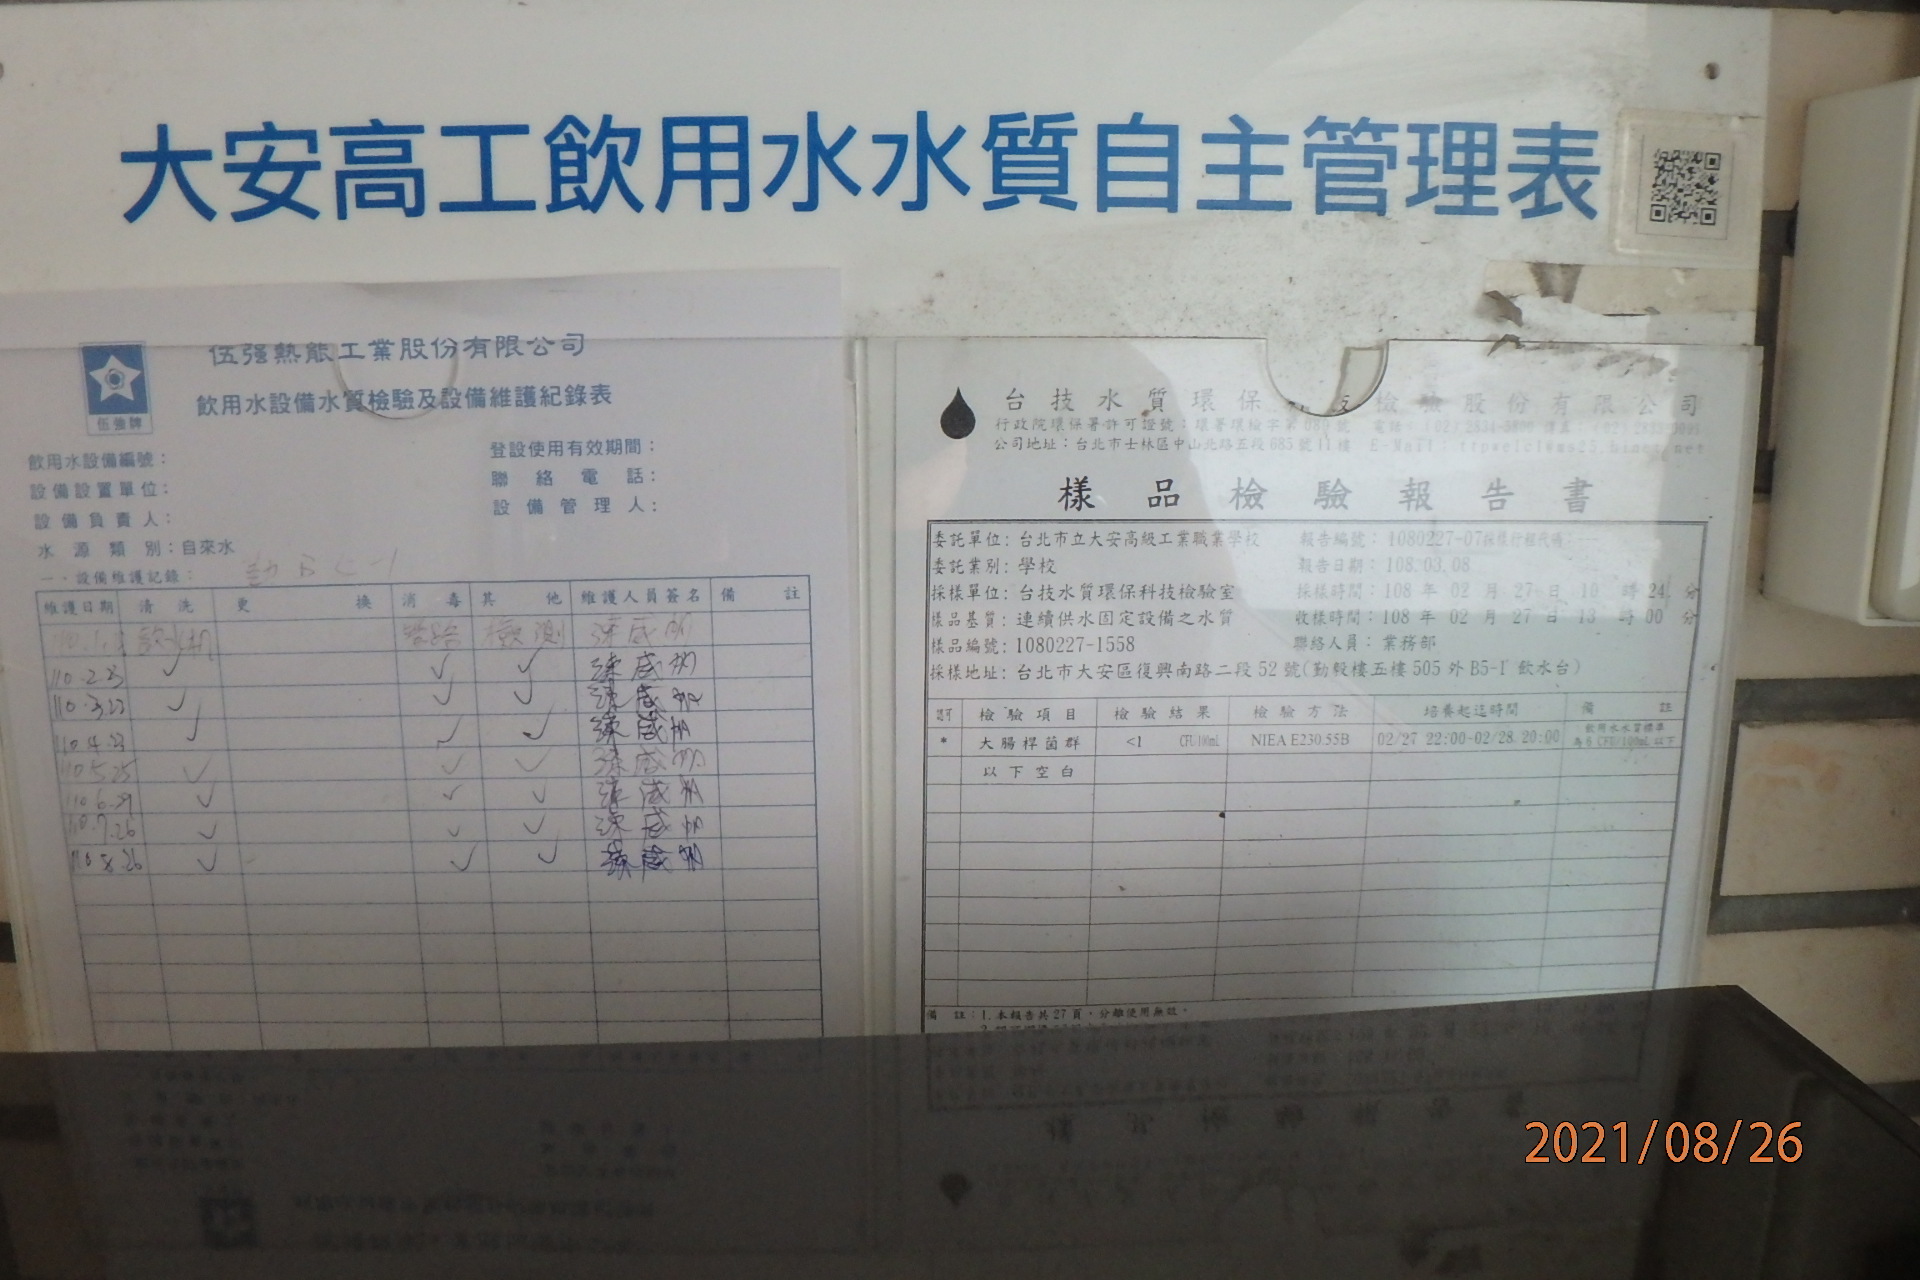 大安高工飲用水水質自主管理表
伍強熱能工業股份有限公司
飲用水設備水質檢驗及設備維護紀錄表
伍強牌
飲用水設備編號：
設備設置單位：
設備負責人：
水源類別：自來水
登設使用有效期間：
聯絡電話：
設備管理人：
一、設備維護記錄：
維護日期 清洗 更換 消毒 其他 維護人員簽名 備註
飲水機 檢測
110.2.23 ✓ ✓ ✓
110.3.23 ✓ ✓ ✓
110.4.23 ✓ ✓ ✓
110.5.25 ✓ ✓ ✓
110.6.29 ✓ ✓ ✓
110.7.26 ✓ ✓ ✓
110.8.26 ✓ ✓ ✓
台技水質環保 檢驗股份有限公司
行政院環保署許可證號：環署環檢字第 號
公司地址：台北市士林區中山北路五段685號11樓
樣品檢驗報告書
委託單位：台北市立大安高級工業職業學校 報告編號：1080227-07採樣行程代碼：—
委託業別：學校 報告日期：108.03.08
採樣單位：台技水質環保科技檢驗室 採樣時間：108年02月27日10時24分
樣品基質：連續供水固定設備之水質 收樣時間：108年02月27日13時00分
樣品編號：1080227-1558 聯絡人員：業務部
採樣地址：台北市大安區復興南路二段52號(勤毅樓五樓505外B5-1飲水台)
認可 檢驗項目 檢驗結果 檢驗方法 培養起迄時間 備註
* 大腸桿菌群 <1 CFU/100mL NIEA E230.55B 02/27 22:00-02/28 20:00 飲用水水質標準為6 CFU/100mL以下
以下空白
備註：1.本報告共27頁，分離使用無效。
2021/08/26